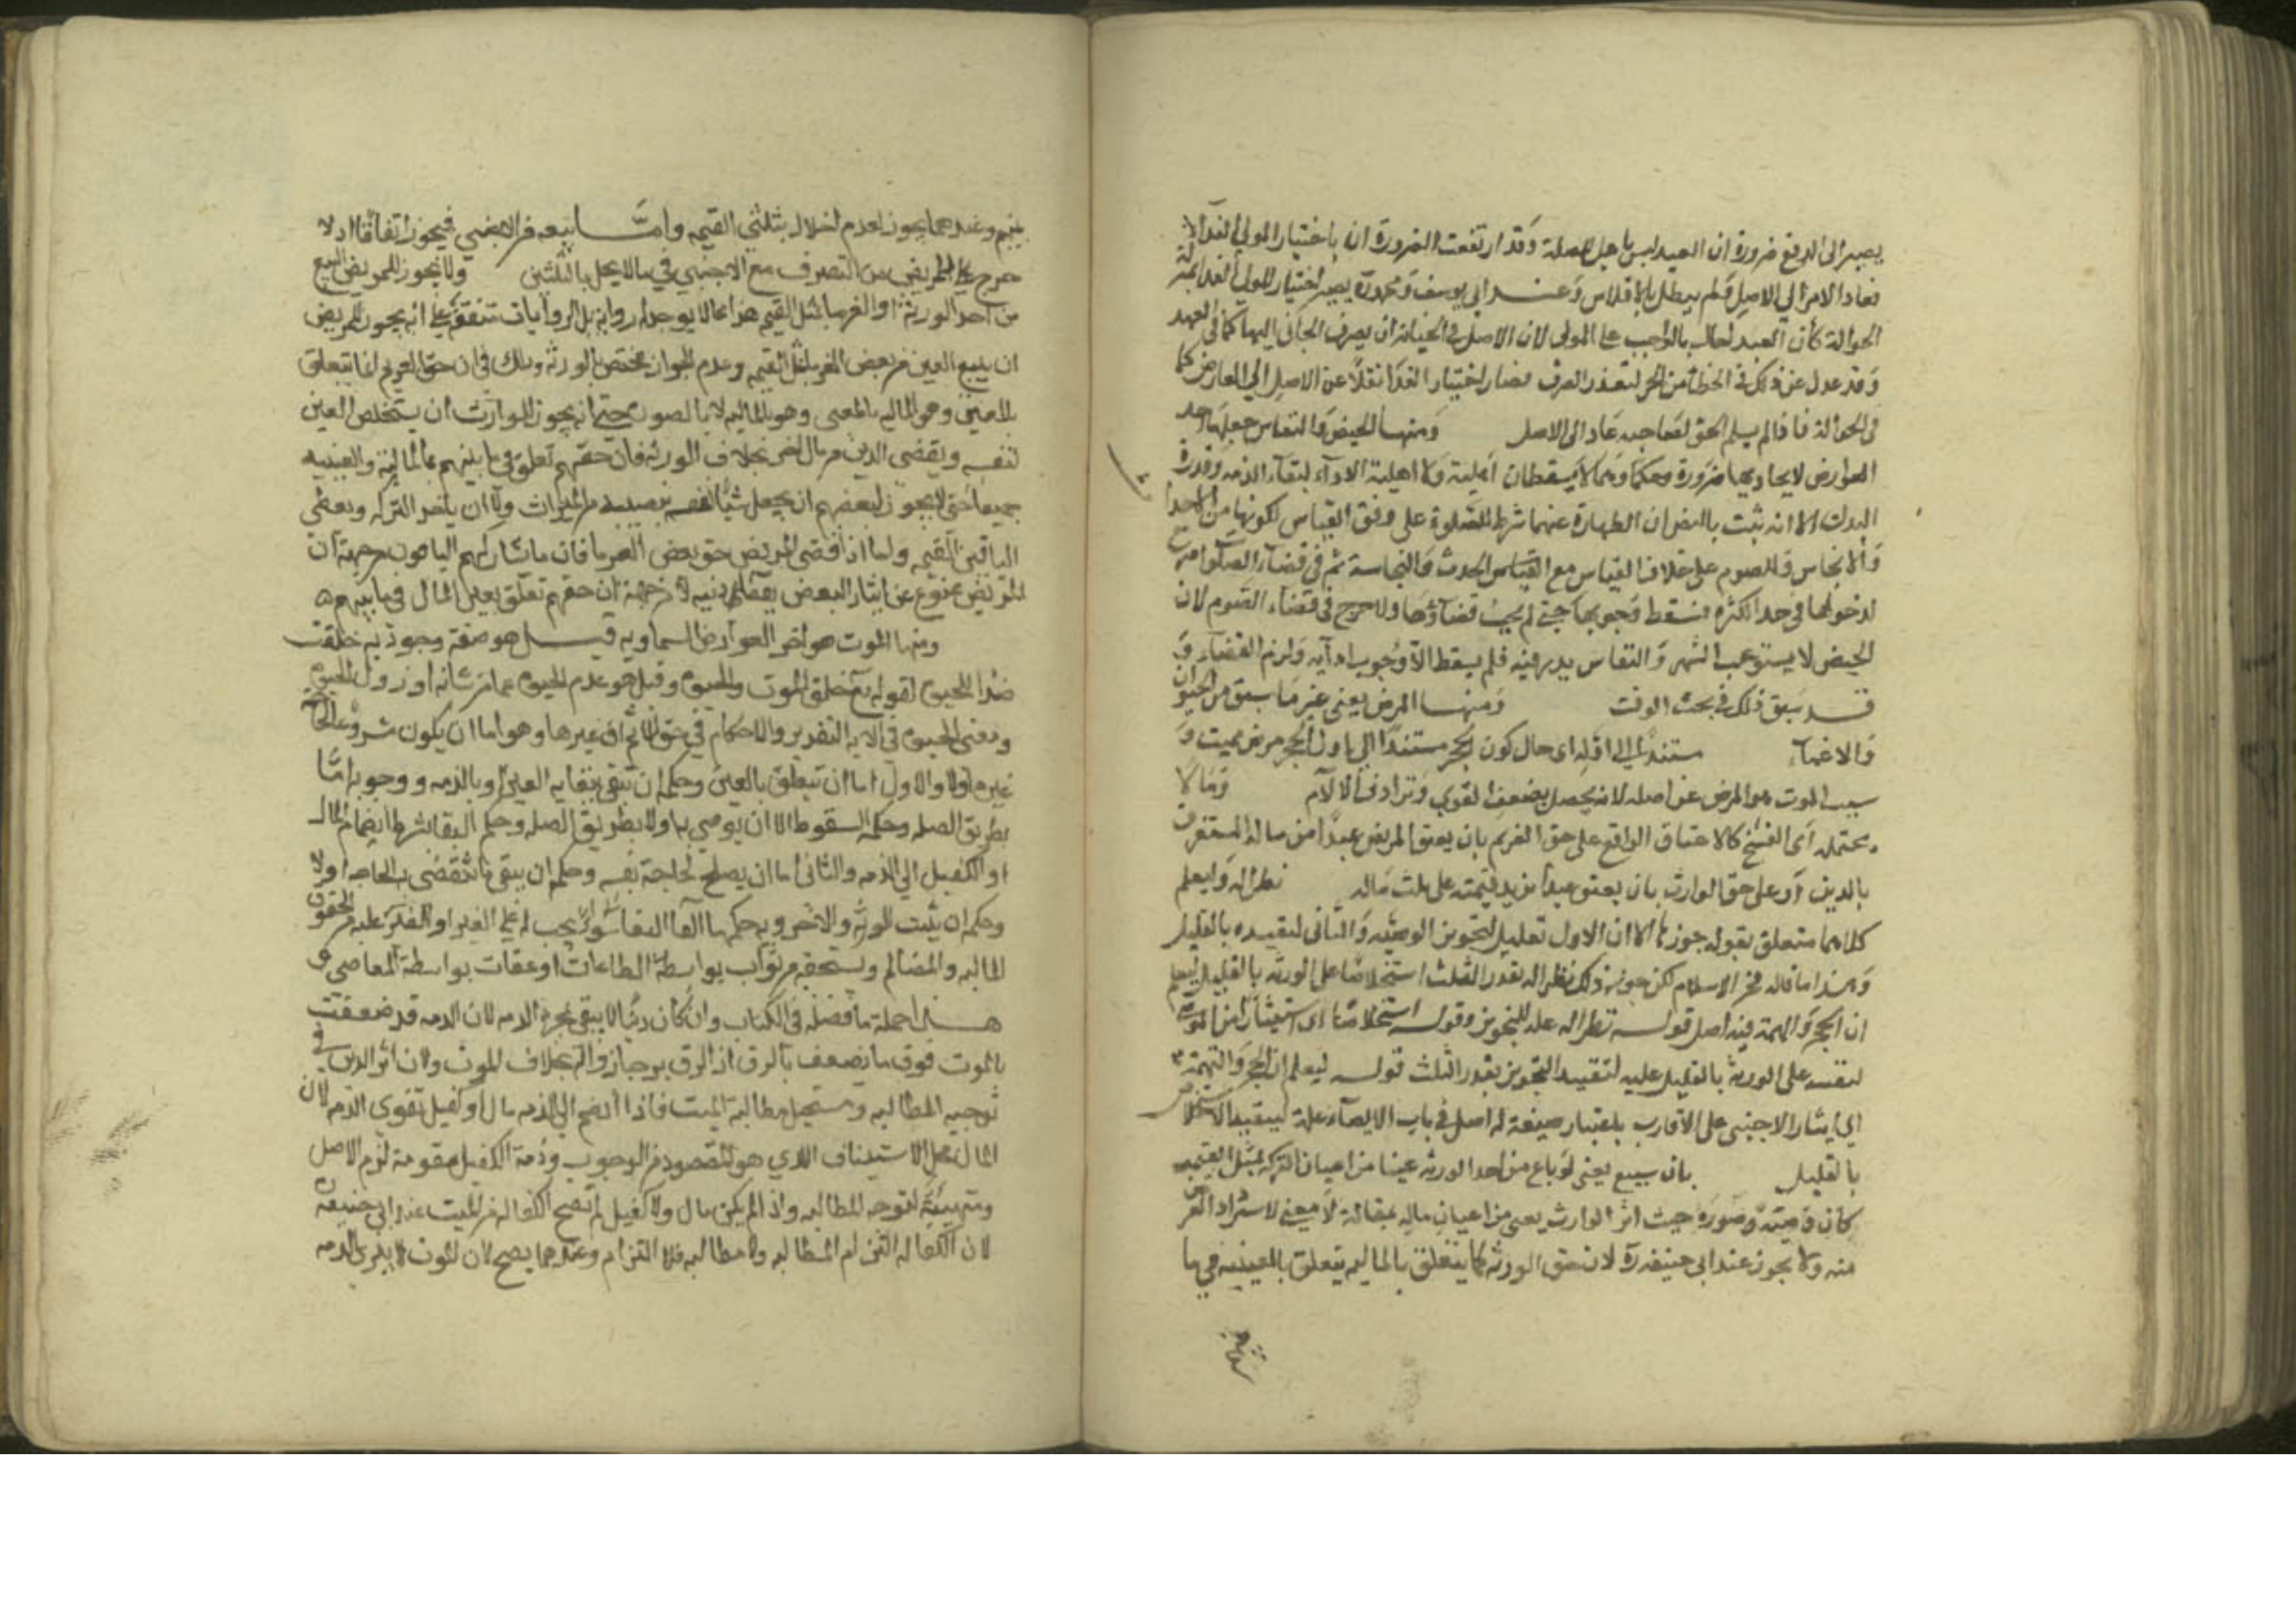 يصير الى الدفع ضرورة ان العبد ليس باهل للصلة وقد ارتفعت الضرورة ان باختيار المولى الفدآ الا
فعاد الامر الي الاصل ولم يبطل بالافلاس وعند ابي يوسف ومحمد رة يصير اختيار المولي الفدا بمنزلة
الحوالة كأن العبد احال بالواجب على المولى لان الاصل في الجناية ان يصرف الجاني اليها كما في العهد
وقد عدل عن ذلك في الخطأ من الحر لتعذر الصرف فصار اختيار الفدا نقلا عن الاصل الي العارض كما
في الحوالة فاذا لم يسلم الحق لصاحبه عاد الى الاصل ومنها الحيض والنفاس جعلهما احد
العوارض لاتحادهما صورة وحكما وهما لا يسقطان اهلية ولا اهلية الادآء لبقاء الذمه وقدرة
البدن الا انه ثبت بالنص ان الطهارة عنهما شرط للصلوة على وفق القياس لكونهما من الاحداث
والانجاس وللصوم على خلاف القياس مع الحدث والنجاسة ثم في قضآء الصلوة حرج
لدخولها في حد الكثره فسقط وجوبها حتى لم يجب قضاؤها ولا حرج في قضاء الصوم لان
الحيض لا يستوعب الشهر والنفاس يندر فيه فلم يسقط الا وجوب ادآيه ولزم القضآء و
قد سبق ذلك في بحث الوقت ومنها المرض يعني غير ما سبق من الجنون
والاغمآء مستندا الي اوله اى حال كون الحجر مستندا الي اول الحجر مرض مميت و
سبب الموت هو المرض عن اصله لانه يحصل بضعف القوي وترادف الالآم وما لا
يحتمله اى الفسخ كالاعتاق الواقع على حق الغريم بان يعتق المريض عبدا من ماله المستغرق
بالدين او على حق الوارث بان يعتق عبدا تزيد قيمته على ثلث ماله نظرا له وليعلم
كلاهما متعلق بقوله جوزنا الا ان الاول تعليل لتجويز الوصية والثاني لتقييده بالقليل
وهذا ما قاله فخر الاسلام لكن جوز ذلك نظرا له بقدر الثلث استخلاصا على الورثه بالقليل ليعلم
ان الحجر والتهمة فيه اصل قوله نظرا له علة للتجويز وقوله استخلاصا اى استيثارا من المورث
لنفسه على الورثة بالقليل عليه لتقييد التجويز بقدر الثلث قوله ليعلم ان الحجر والتهمة
الي ايثار الاجنبى على الاقارب باعتبار صيغة له اصل في باب الايصآء علة لتقييد الاستخلاص
بالقليل بان يبيع يعنى لو باع من احد الورثه عينا من اعيان التركه بمثل القيمه
كان وصيته صورة حيث اثر الوارث يعنى من اعيان ماله بمقابلة لا معنى لاسترداد العوض
منه ولا يجوز عند ابي حنيفه رة لان حق الورثه كما يتعلق بالماليه يتعلق بالعينيه في ما
بينهم وعندهما يجوز لعدم اخلال بثلثي القيمه وامّا بيعه من الاجنبي فيجوز اتفاقا اذ لا
حرج على المريض من التصرف مع الاجنبي في ما لا يخل بالثلثين ولا يجوز للمريض البيع
من احد الورثة او الغرما بمثل القيمه هذا مما لا يوجد له رواية بل الروايات متفقة على انه يجوز للمريض
ان يبيع العين من بعض الغرما بمثل القيمه وعدم الجواز مختص بالورثه وذلك في ان حق الغريم انما يتعلق
بالمعنى وهو الماليه لا بالصورة حتى انه يجوز للوارث ان يستخلص العين
لنفسه ويقضي الدين من مال اخر بخلاف الورثه فان حقهم تعلق في ما بينهم بالمالية والعينيه
جميعا حتى لا يجوز لبعضهم ان يجعل شيأ لنفسه بنصيبه من الميراث ولا ان ياخذ التركه ويعطي
الباقين القيمه ولهذا اذا قضى المريض حق بعض الغرما فان ما شاركهم الباقون من جهة ان
المريض ممنوع عن ايثار البعض بقضآء دينه لا من جهة ان حقهم تعلق بعين المال فيما بينهم
ومنها الموت هو اخر العوارض السماويه قيل هو صفة وجوديه خلقت
ضدا للحيوة لقوله تع خلق الموت والحيوة وقيل هو عدم الحيوة عما من شانه او زوال الحيوة
ومعنى الحيوة في الايه التقدير والاحكام في حق غيرها وهو اما ان يكون مشروعا لحاجة
غيره اولا والاول اما ان يتعلق بالعين وحكمه ان تبقى ببقاية العين او بالذمه ووجوبه امّا
بطريق الصله وحكمه السقوط الا ان يوصي به اولا بطريق الصله وحكمه البقا بشرط انضمام المال
او الكفيل الي الذمه والثاني اما ان يصلح لحاجة نفسه وحكمه ان يبقى ما تنقضي به الحاجه اولا
وحكمه ان يثبت للورثه والاخرويه حكمها البقا سوا يجب له على الغير او للغير عليه من الحقوق
الماليه والمظالم ويستحقه من ثواب بواسطة الطاعات او عقاب بواسطة المعاصى و
هذا جملة ما فصله في الكتاب وان كان دينا لا يبقى بمجرد الذمه لان الذمه قد ضعفت
بالموت فوق ما تضعف بالرق اذ الرق يرجى زواله بخلاف الموت ولان اثر الدين في
توجيه المطالبه ويستحيل مطالبة الميت فاذا انضم الي الذمه مال او كفيل تقوي الذمه لان
المال محل الاستيفاء الذي هو المقصود من الوجوب وذمة الكفيل مقومة لذمة الاصل
ومهيئة لتوجه المطالبه واذا لم يكن مال ولا كفيل لم تصح الكفاله عن الميت عند ابي حنيفة
لان الكفاله التزام المطالبه ولا مطالبه فلا التزام وعندهما يصح لان الموت لا يبرى الذمه